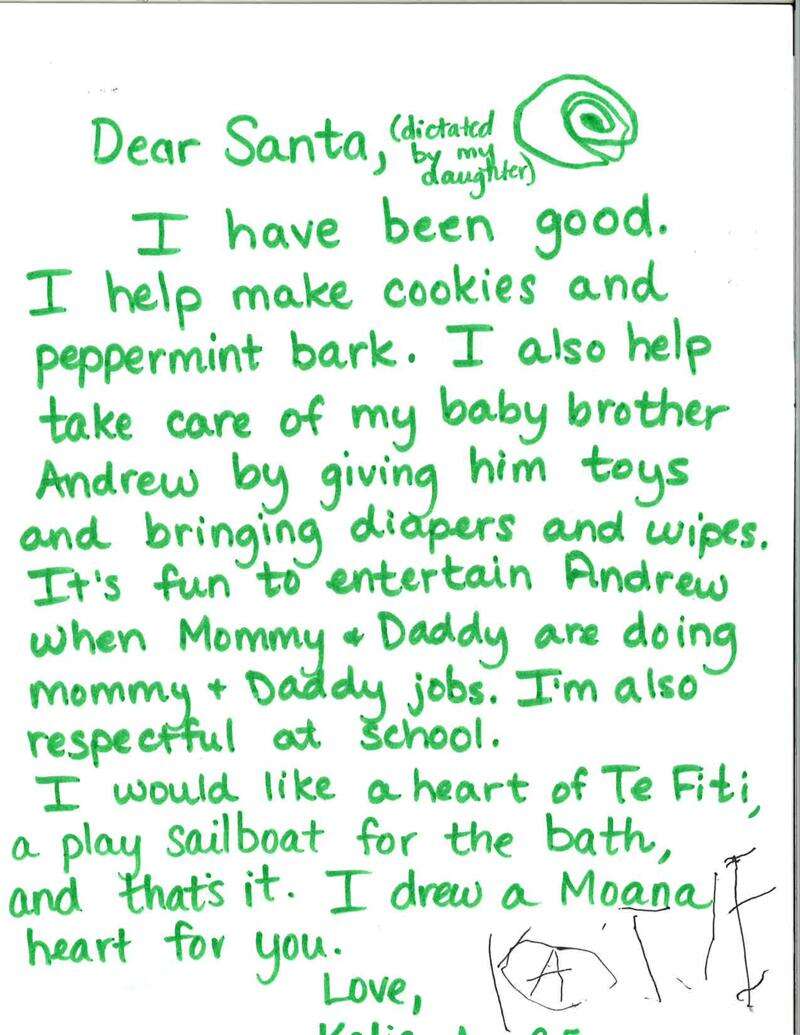 Dear Santa, (dictated
by my
daughter)
I have been good.
I help make cookies and
peppermint bark. I also help
take care of my baby brother
Andrew by giving him toys
and bringing diapers and wipes.
It's fun to entertain Andrew
when Mommy & Daddy are doing
mommy + Daddy jobs. I'm also
respectful at school.
I would like a heart of Te Fiti,
a play sailboat for the bath,
and that's it. I drew a Moana
heart for you.
Love,